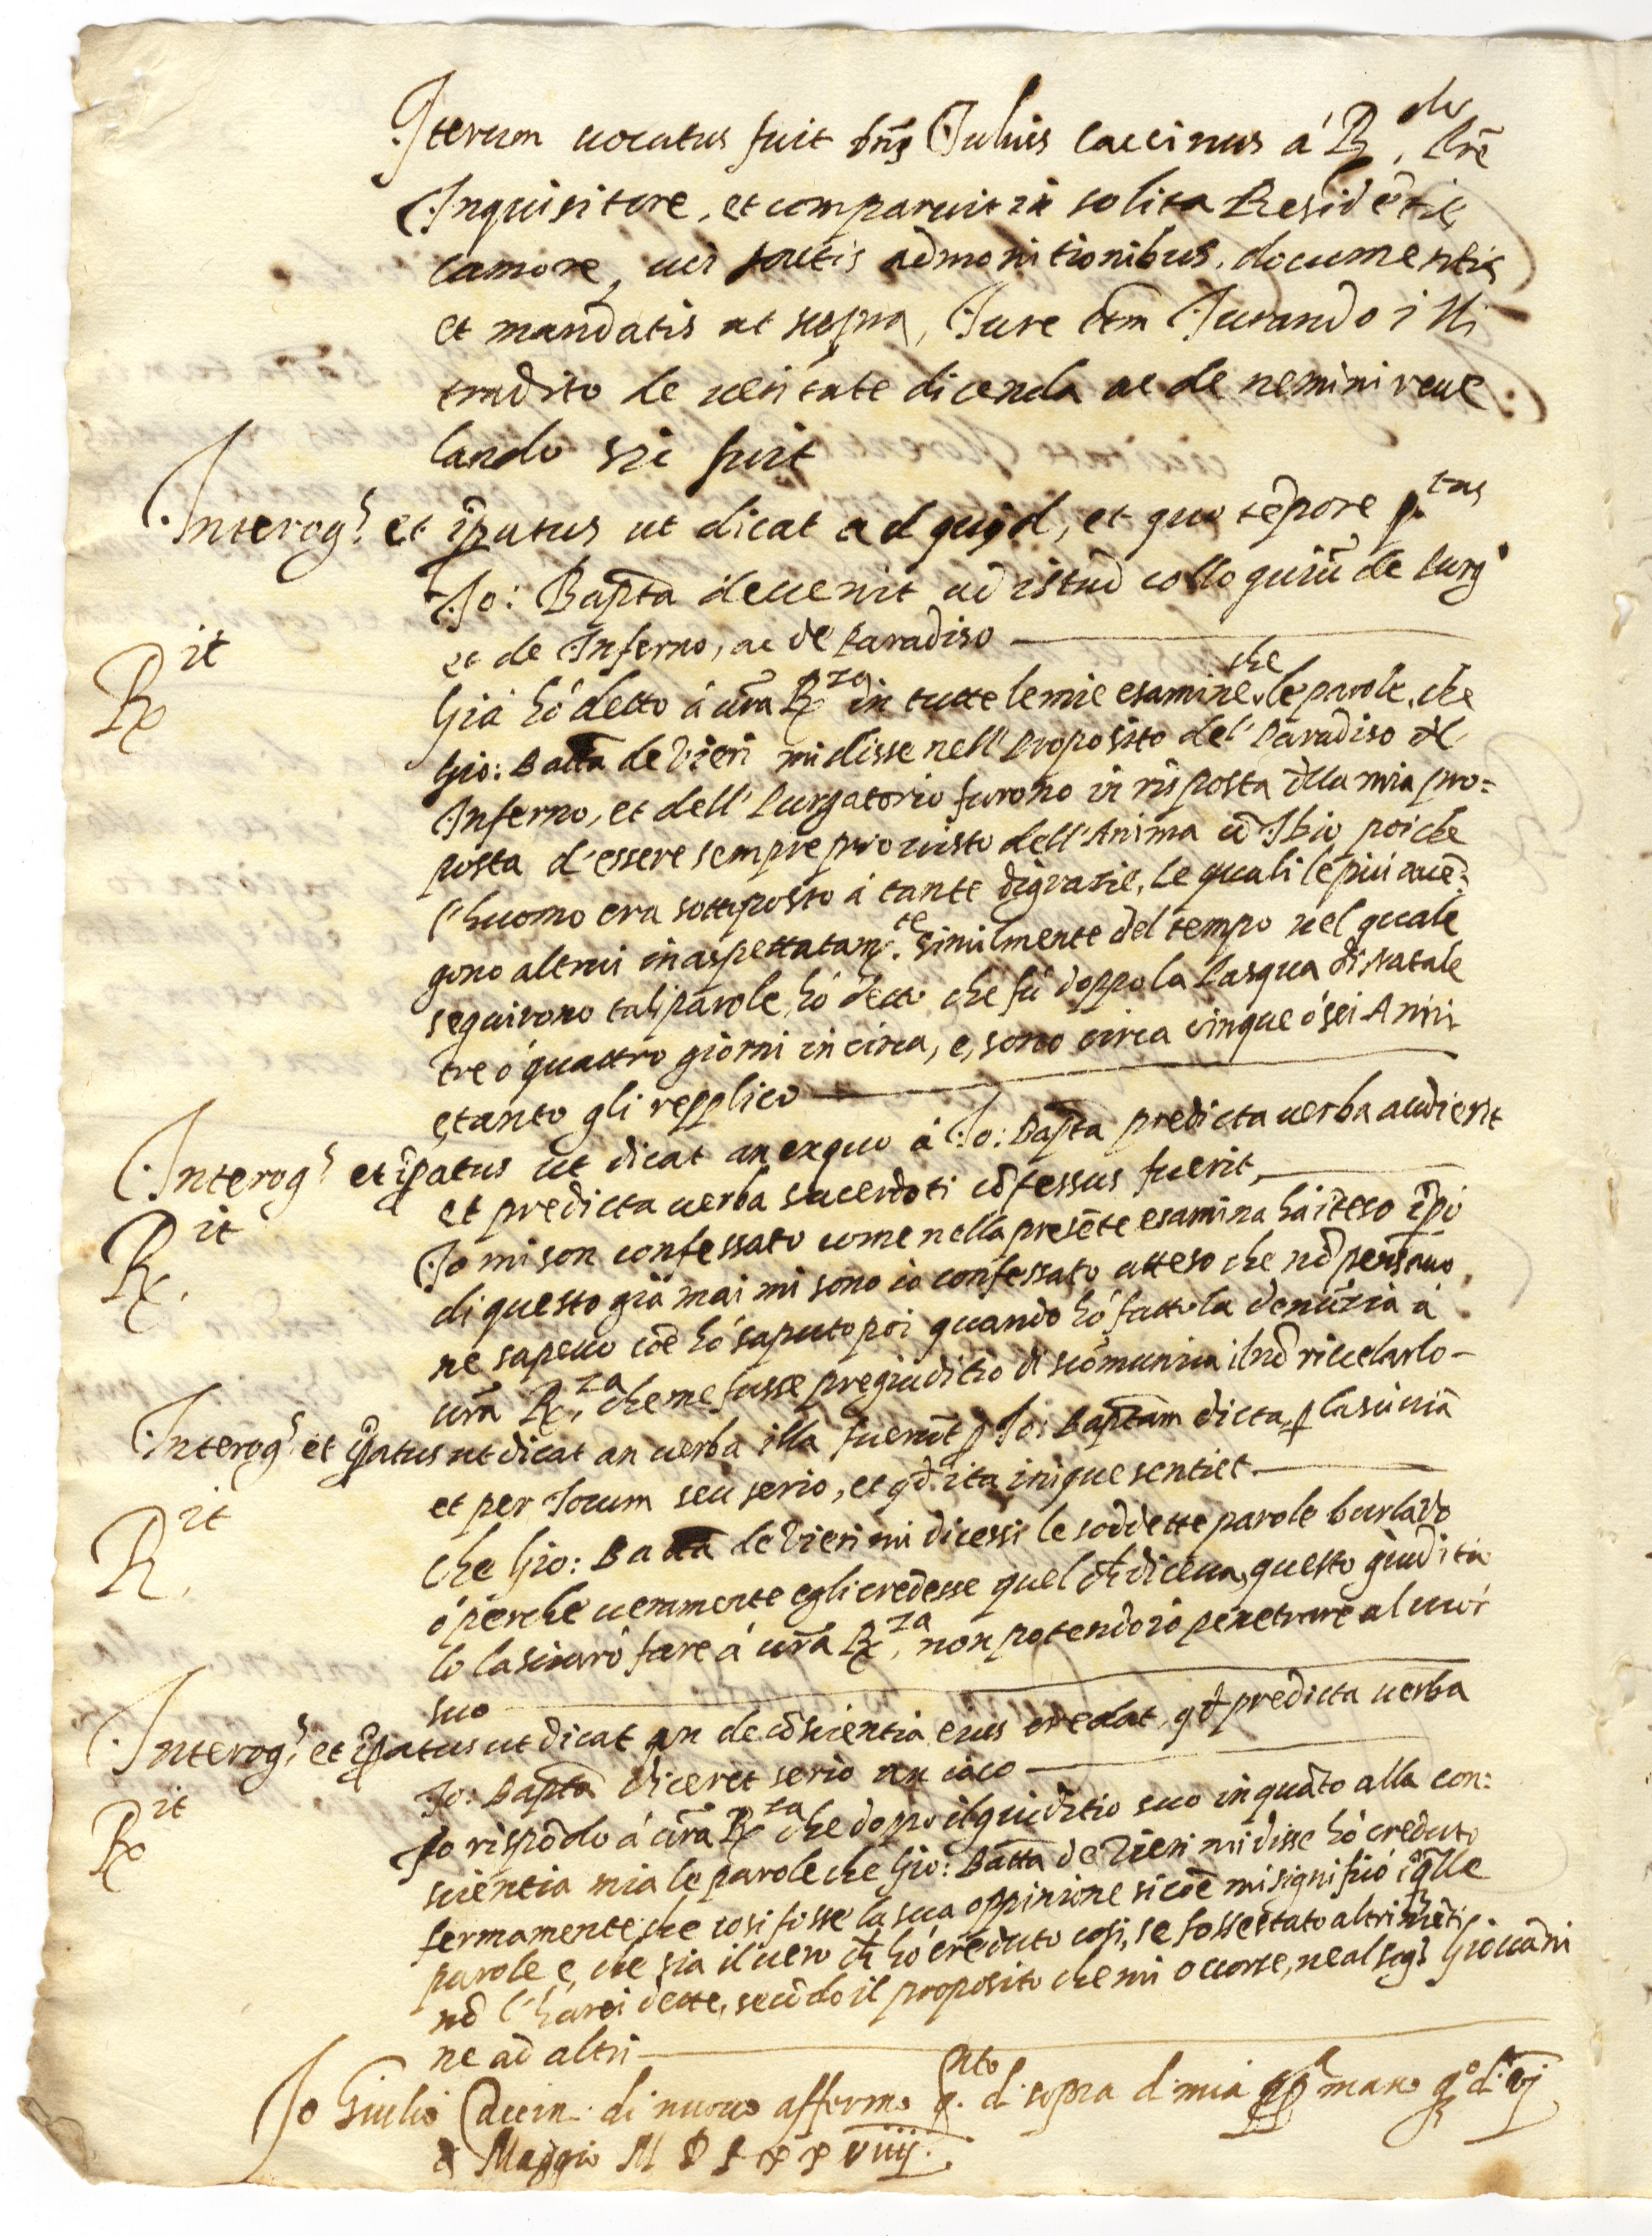 Iterum uocatus fuit dns Iulius Caccinus á R.do Pre
Inquisitore, et comparuit in solita Residẽtie
camore, uis factis admonitionibus, documentis
et mandatis ut supra, Iure etm Iurando illi
tradito de ueritate dicenda ac de nemini reue
lando sic fuit
Interog.s et ip̃atus ut dicat ad quid, et quo tẽpore p.tus
Io: Bap̃ta deuenit ad istud colloquiũ de Purg.o
et de Inferno, ac de Paradiso
R.it Già hó detto á ũra R.za in tutte le mie esamine, che le parole, che
Gio: Batta de Vieri mi disse nell' proposito del' Paradiso del
Inferno, et dell' Purgatorio furono in risposta della mia pro=
posta d'essere sempre prouisto dell'Anima cõ Ihũ poi che
l'huomo era sottoposto á tante disgrazie, le quali le piú auẽ=
gono altrui inaspettatam.te similmente del tempo nel quale
seguirono tali parole hó detto che fú doppo la Pasqua di Natale
tre ó quattro giorni in circa, e, sono circa cinque ó sei Anni
e tanto gli repplico
Interog.s et ip̃atus ut dicat an ex quo á Io: Bap̃ta predicta uerba audierit
et predicta uerba sacerdoti cõfessus fuerit,
R.it Io mi son confessato come nella presẽte esamina há ĩteso ĩpó
di questo già mai mi sono io confessato atteso che nõ pensauo
ne sapeuo cõe hó saputo poi quando hó fatto la denũzia á
ũra R.za, che me fusse pregiuditio di scõmunica il nõ riuelarlo-
Interog.s et ip̃atus ut dicat an uerba illa fuerũt p Io: Bap̃tam dicta, p lasciuiã
et per Iocum seu serio, et qd̃ ita inique sentiet.
R.it Che Gio: Batta de Vieri mi dicessi le soddette parole burlãdo
ó perche ueramente egli credesse quel ch̃ diceua, questo giuditio
lo lasciaró fare á ũra R.za, non potendo io penetrare al cuór
suo
Interog.s et ip̃atus ut dicat an de cõscientia eius credat, qd̃ predicta uerba
Io: Bap̃ta diceret serio an ioco
R.it Io rispõdo á ũra R.za che doppo il giuditio suo in quãto alla con:
scientia mia le parole che Gio: Batta de Vieri mi disse hó creduto
fermamente che cosi fosse la sua oppinione si cõe mi significó ĩ q̃lle
parole e, che sia il uero ch̃ hó creduto cosi, se fosse stato altrimẽti
nõ l'harei dette, secõdo il proposito che mi occorse, ne al Sig.r Giouãni
ne ad altri
Io Giulio Caccin. di nuouo affermo q.nto d. sopra d. mia pp.a mano q.o d. vj
d Maggio M D L x x viiij.